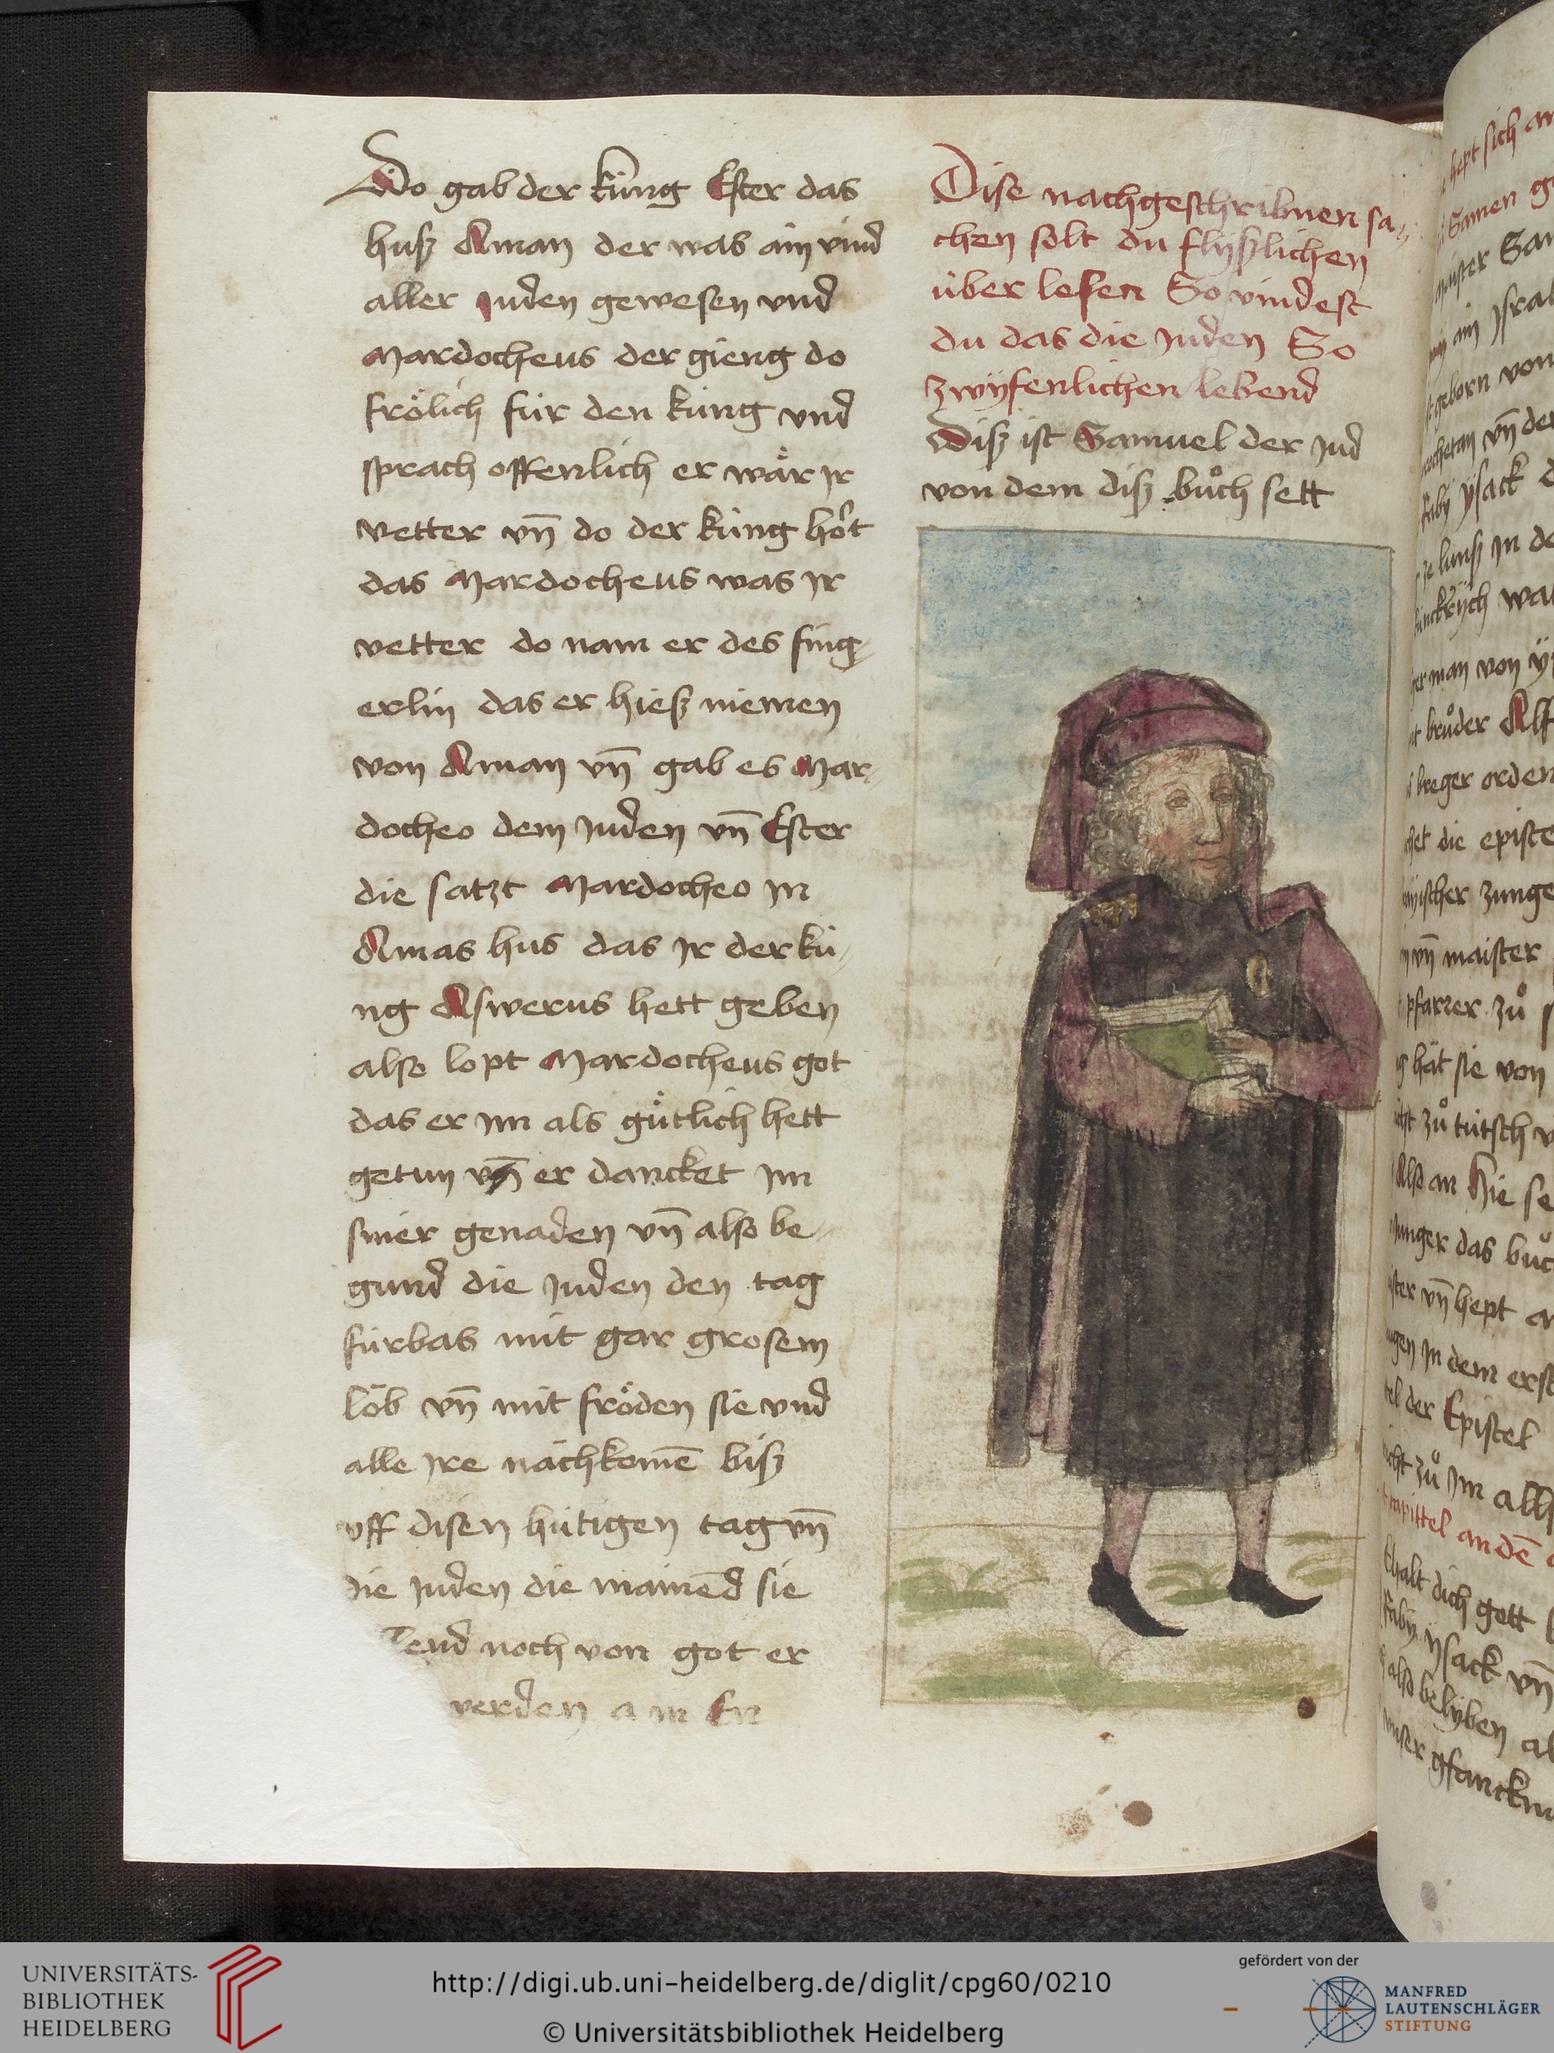 Do gab der küng Ester das
huß Aman der was ain vind
aller Juden gewesen vnd
Mardocheus der gieng do
frölich für den küng vnd
sprach offenlich er wär Jr
vetter vn̄ do der küng hört
das Mardocheus was Jr
vetter do nam er des fing⸗
erlin das er hieß niemen
von Aman vn̄ gab es Mar⸗
docheo dem Juden vn̄ Ester
die satzt Mardocheo Jn
Amas hus das Jr der kü⸗
ng Aswerus hett geben
also lopt Mardocheus got
das er Jm als gütlich hett
getun vn̄ er dancket Jm
siner genaden vn̄ also be⸗
gund die Juden den tag
fürbas mit gar grosem
lob vn̄ mit fröden sie vnd
alle Jre nachkomē biß
vff disen hütigen tag vn̄
die Juden die mainēd sie
noch von got er
werden amen
Dise nachgeschribnen sa⸗
chen solt du flyßlichen
über lesen So vindest
du das die Juden So
zwyfenlichen lebend
Diß ist Samuel der Jud
von dem diß bůch sett
hept sich an
Samen
maister
ain Jsrah
geborn von
vn̄ der
Raby ysack
Jn
man von
brůder
orden
die episte
zunge
vn̄ maister
pfarrer zů
hät sie von
zů tütsch
an hie se
Junger das bůc
vn̄ hept
Jn dem erst
der Epistel
zů Jm
capittel an dē
dich gott
Raby ysack vn̄
also belyben
vnser
UNIVERSITÄTS-
BIBLIOTHEK
HEIDELBERG
http://digi.ub.uni-heidelberg.de/diglit/cpg60/0210
© Universitätsbibliothek Heidelberg
gefördert von der
MANFRED
LAUTENSCHLÄGER
STIFTUNG